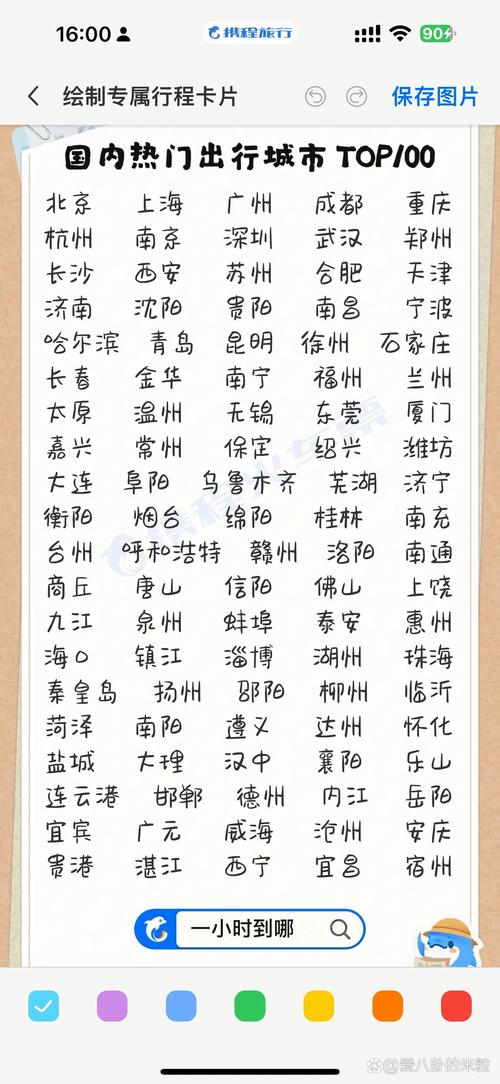 16:00 携程旅行 90
绘制专属行程卡片 保存图片
国内热门出行城市 TOP100
北京 上海 广州 成都 重庆
杭州 南京 深圳 武汉 郑州
长沙 西安 苏州 合肥 天津
济南 沈阳 贵阳 南昌 宁波
哈尔滨 青岛 昆明 徐州 石家庄
长春 金华 南宁 福州 兰州
太原 温州 无锡 东莞 厦门
嘉兴 常州 保定 绍兴 潍坊
大连 阜阳 乌鲁木齐 芜湖 济宁
衡阳 烟台 绵阳 桂林 南充
台州 呼和浩特 赣州 洛阳 南通
商丘 唐山 信阳 佛山 上饶
九江 泉州 蚌埠 泰安 惠州
海口 镇江 淄博 湖州 珠海
秦皇岛 扬州 邵阳 柳州 临沂
菏泽 南阳 遵义 达州 怀化
盐城 大理 汉中 襄阳 乐山
连云港 邯郸 德州 内江 岳阳
宜宾 广元 威海 沧州 安庆
贵港 湛江 西宁 宜昌 宿州
携程火车票
一小时到哪
@爱八卦的米粒